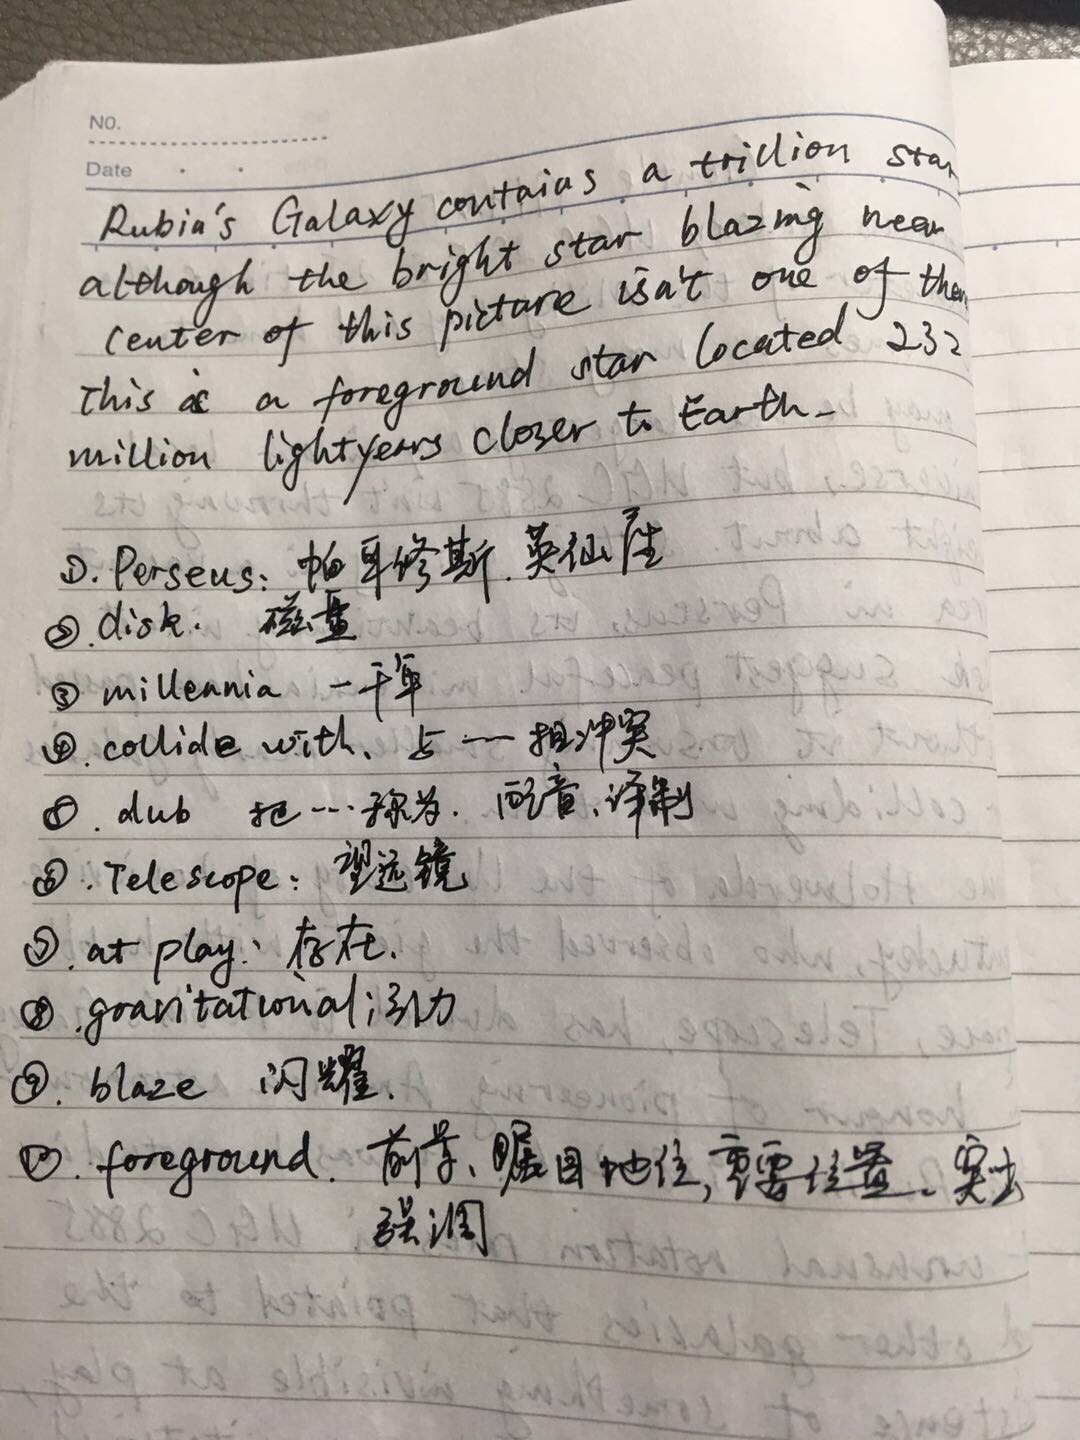 NO.
Date
Rubin's Galaxy contains a trillion star
although the bright star blazing near
center of this picture isn't one of them
This is a foreground star located 232
million lightyears closer to Earth.
①. Perseus: 帕耳修斯. 英仙座
②. disk. 磁盘
③ millennia 一千年
④. collide with. 与……相冲突
⑤. dub 把…称为. 配音、译制
⑥. Telescope: 望远镜
⑦. at play: 存在.
⑧. gravitational: 引力
⑨. blaze 闪耀.
⑩. foreground. 前景、瞩目地位, 重要位置、突出
强调